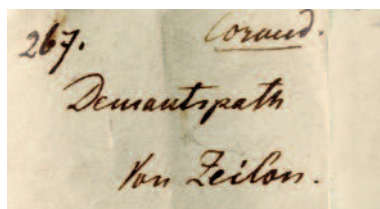 267.
Corund.
Demantspath
Von Zeilon.